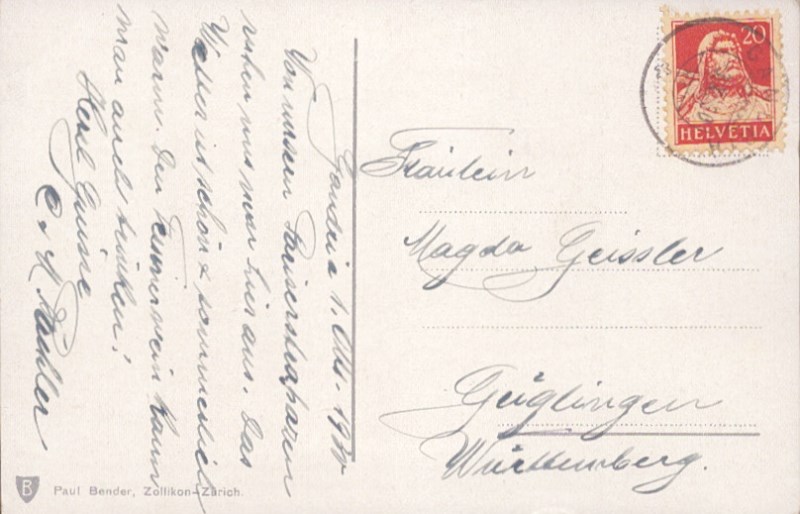 Gandria 1. Okt. 19
Von unseren Pariserstrapazen
ruhen wir nun hier aus. Das
Wetter ist schön & sommerlich
warm. Den Tessinerwein kann
man auch trinken!
Herzl Grüsse
Fräulein
Magda Geissler
Geislingen
Württemberg.
20
HELVETIA
B
Paul Bender, Zollikon-Zürich.